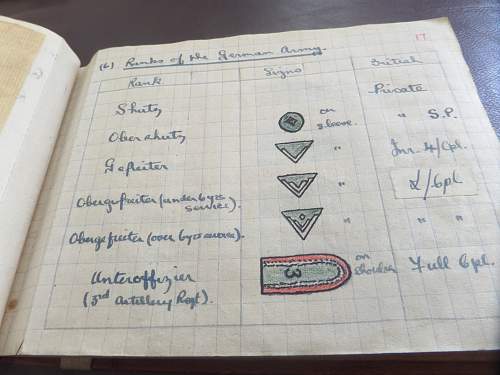 17
(6) Ranks of the German Army.
Rank Signs British
Shutz Private
Obershutz on sleeve. " S.P.
Gefreiter " Jnr. L/Cpl.
Obergefreiter (under 6 yrs service). " L/Cpl
Obergefreiter (over 6 yrs service). " " "
Unteroffizier (3rd Artillery Regt). 3 on shoulder Full Cpl.